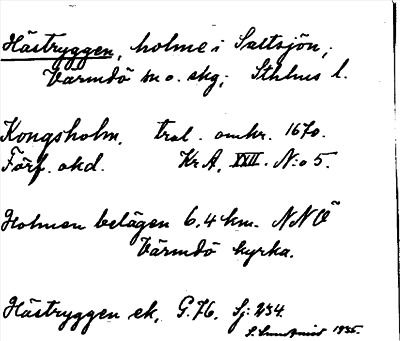 Hästryggen, holme i Saltsjön,
Värmdö sn o. skg; Sthlms l.
Kongsholm. trol. omkr. 1670.
Förf. okd. Kr.A. XXII. N:o 5.
Holmen belägen 6,4 km. NNO
Värmdö kyrka.
Hästryggen ek. G.76. Sj: 234.
1935.